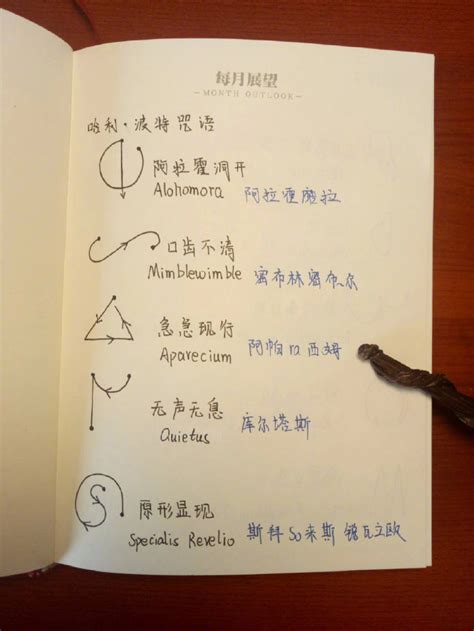 每月展望
—MONTH OUTLOOK—
哈利·波特咒语
阿拉霍洞开
Alohomora 阿拉霍魔拉
口齿不清
Mimblewimble 密布林密布尔
急急现行
Aparecium 阿帕ra西姆
无声无息
Quietus 库尔塔斯
原形显现
Specialis Revelio 斯拜So来斯 锐瓦立欧